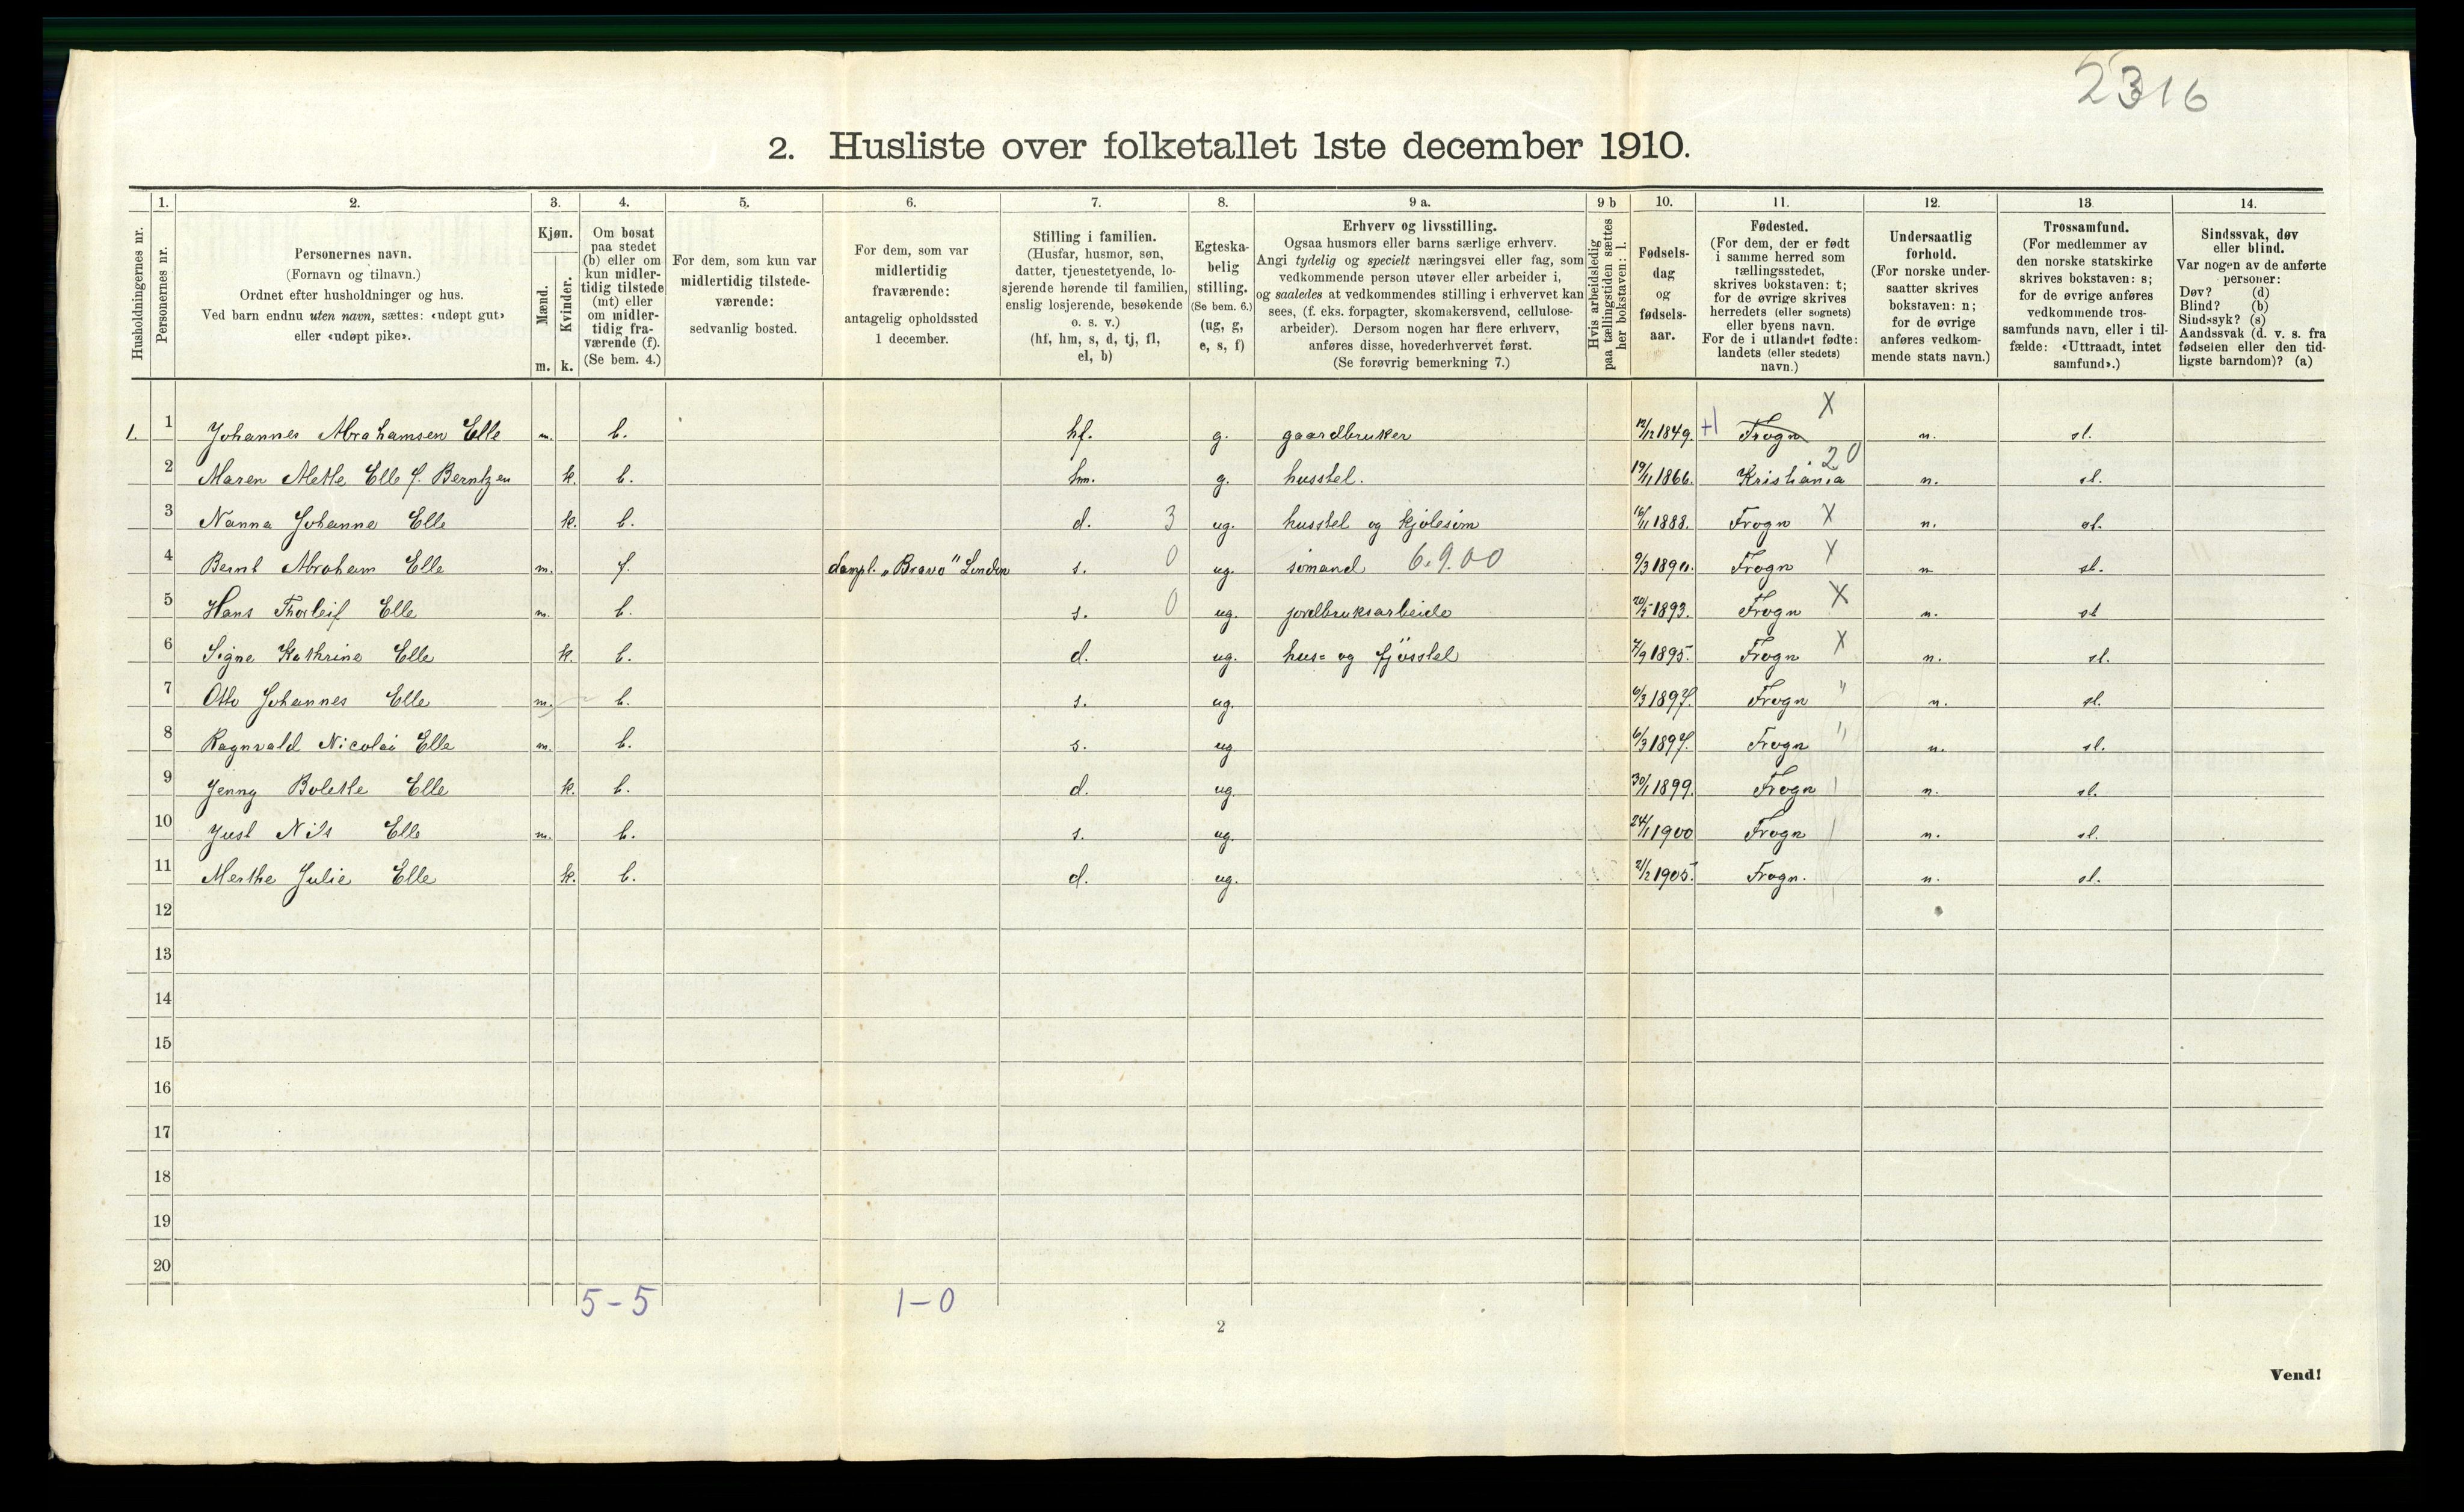 2316
2. Husliste over folketallet 1ste december 1910.
Husholdningernes nr.
Personernes nr.
1. 2. 3. 4. 5. 6. 7. 8. 9 a. 9 b 10. 11. 12. 13 14.
Personernes navn.
(Fornavn og tilnavn.)
Ordnet efter husholdninger og hus.
Ved barn endnu uten navn, sættes: «udøpt gut»
eller «udøpt pike».
Kjøn.
Mænd.
Kvinder.
m. k.
Om bosat
paa stedet
(b) eller om
kun midler-
tidig tilstede
(mt) eller
om midler-
tidig fra-
værende (f).
(Se bem. 4.)
For dem, som kun var
midlertidig tilstede-
værende:
sedvanlig bosted.
For dem, som var
midlertidig
fraværende:
antagelig opholdssted
1 december.
Stilling i familien.
(Husfar, husmor, søn,
datter, tjenestetyende, lo-
sjerende hørende til familien,
enslig losjerende, besøkende
o. s. v.)
(hf, hm, s, d, tj, fl,
el, b)
Egteska-
belig
stilling.
(Se bem. 6.)
(ug, g,
e, s, f)
Erhverv og livsstilling.
Ogsaa husmors eller barns særlige erhverv.
Angi tydelig og specielt næringsvei eller fag, som
vedkommende person utøver eller arbeider i,
og saaledes at vedkommendes stilling i erhvervet kan
sees, (f. eks. forpagter, skomakersvend, cellulose-
arbeider). Dersom nogen har flere erhverv,
anføres disse, hovederhvervet først.
(Se forøvrig bemerkning 7.)
Hvis arbeidsledig
paa tællingstiden sættes
her bokstaven: l.
Fødsels-
dag
og
fødsels-
aar.
Fødested.
(For dem, der er født
i samme herred som
tællingsstedet,
skrives bokstaven: t;
for de øvrige skrives
herredets (eller sognets)
eller byens navn.
For de i utlandet fødte:
landets (eller stedets)
navn.)
Undersaatlig
forhold.
(For norske under-
saatter skrives
bokstaven: n;
for de øvrige
anføres vedkom-
mende stats navn.)
Trossamfund.
(For medlemmer av
den norske statskirke
skrives bokstaven: s;
for de øvrige anføres
vedkommende tros-
samfunds navn, eller i til-
fælde: «Uttraadt, intet
samfund».)
Sindssvak, døv
eller blind.
Var nogen av de anførte
personer:
Døv? (d)
Blind? (b)
Sindssyk? (s)
Aandssvak (d. v. s. fra
fødselen eller den tid-
ligste barndom)? (a)
1. 1 Johannes Abrahamsen Elle m. b. hf. g. gaardbruker 12/12 1849. +1 Frogn X n. sl.
2 Maren Mette Elle f. Berntzen k. b. hm. g. husstel. 19/11 1866. Kristiania 20 n. sl.
3 Nanna Johanne Elle k. b. d. 3 ug. husstel og kjolesøm 16/11 1888. Frogn X n. sl.
4 Bernt Abraham Elle m. f. dampl. „Bravo" London s. 0 ug. sømand 6.9.00 9/3 1890. Frogn X n sl.
5 Hans Thorleif Elle m. b. s. 0 ug. jordbruksarbeide 20/5 1893. Frogn X n. sl
6 Signe Kathrine Elle k. b. d. ug. hus= og fjösstel 7/9 1895. Frogn X n. sl.
7 Otto Johannes Elle m. b. s. ug. 6/3 1897. Frogn " n. sl.
8 Ragnvald Nicolai Elle m. b. s. ug 6/3 1897. Frogn " n. sl.
9 Jenny Bolette Elle k. b. d. ug. 30/1 1899. Frogn n. sl.
10 Just Nils Elle m. b. s. ug. 24/1 1900 Frogn n. sl.
11 Merthe Julie Elle k. b. d. ug. 21/2 1905. Frogn. n. sl.
12
13
14
15
16
17
18
19
20
5-5 1-0
2
Vend!